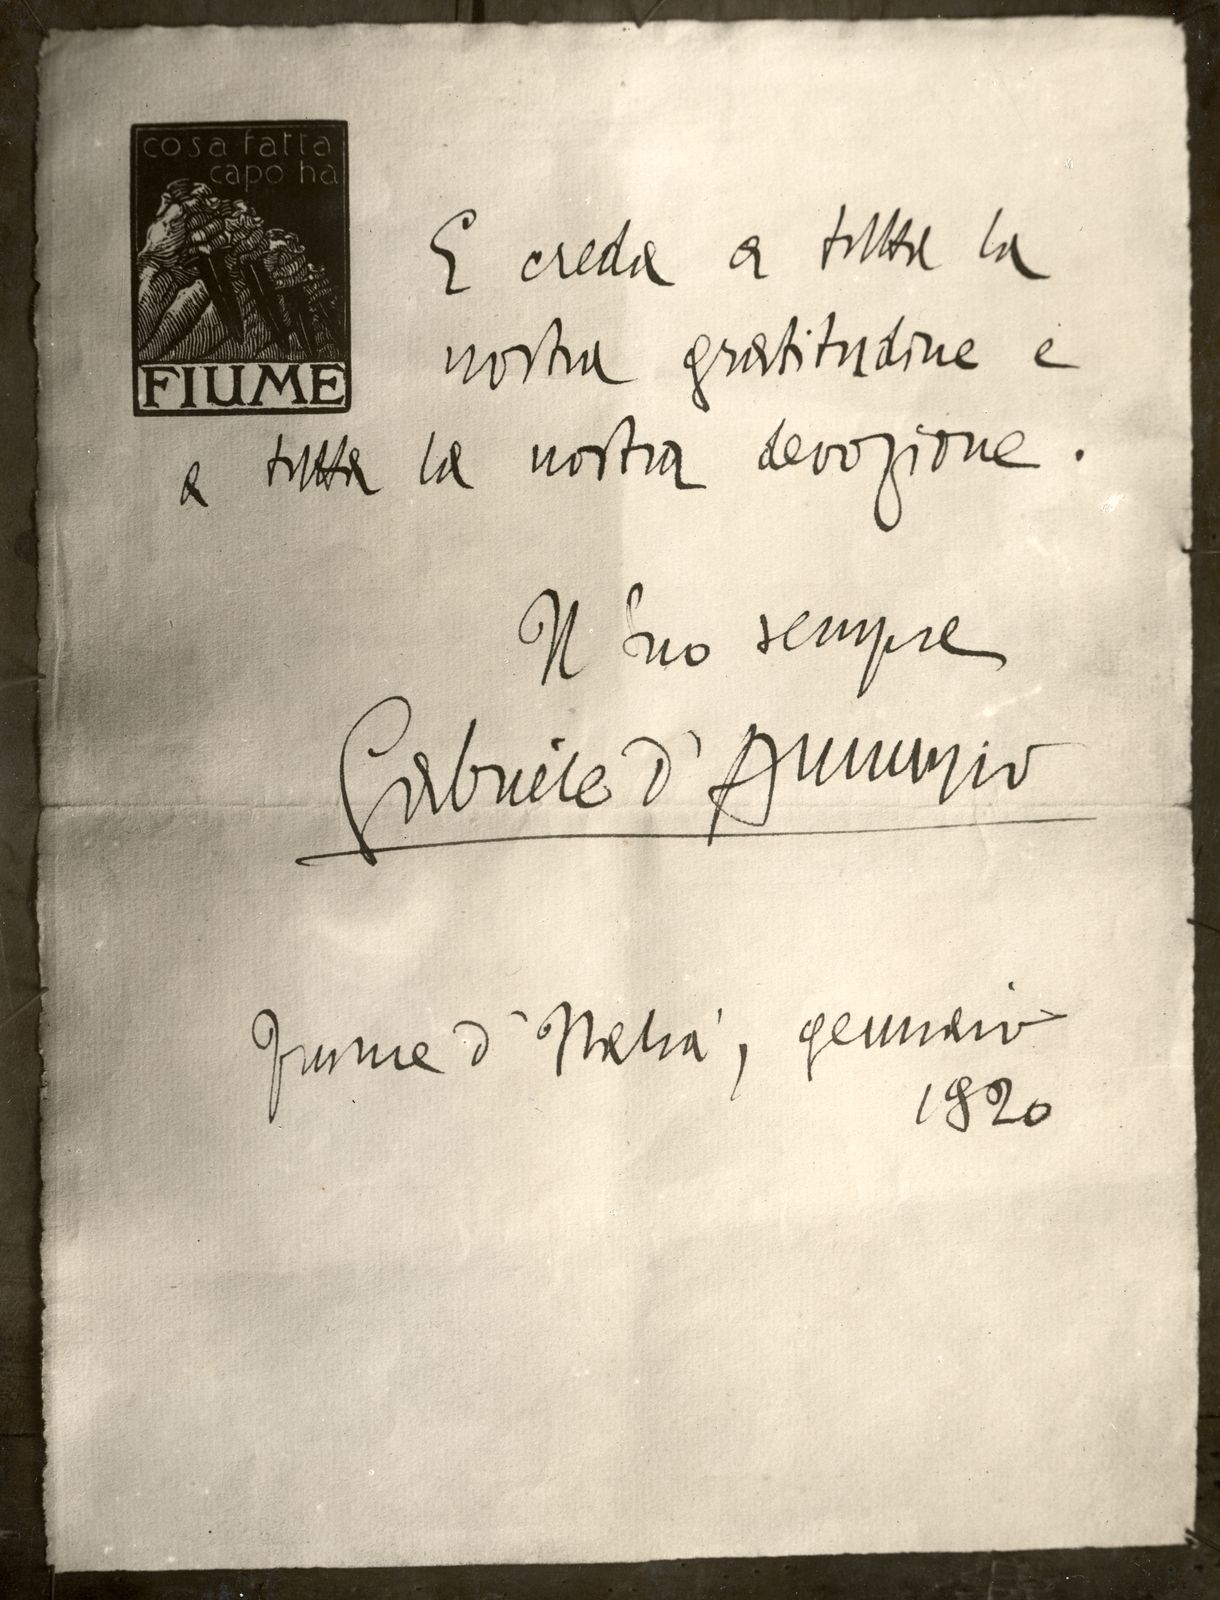 cosa fatta
capo ha
FIUME
E creda a tutta la
nostra gratitudine e
a tutta la nostra devozione.
Il Suo sempre
Gabriele d'Annunzio
Fiume d'Italia, gennaio
1920